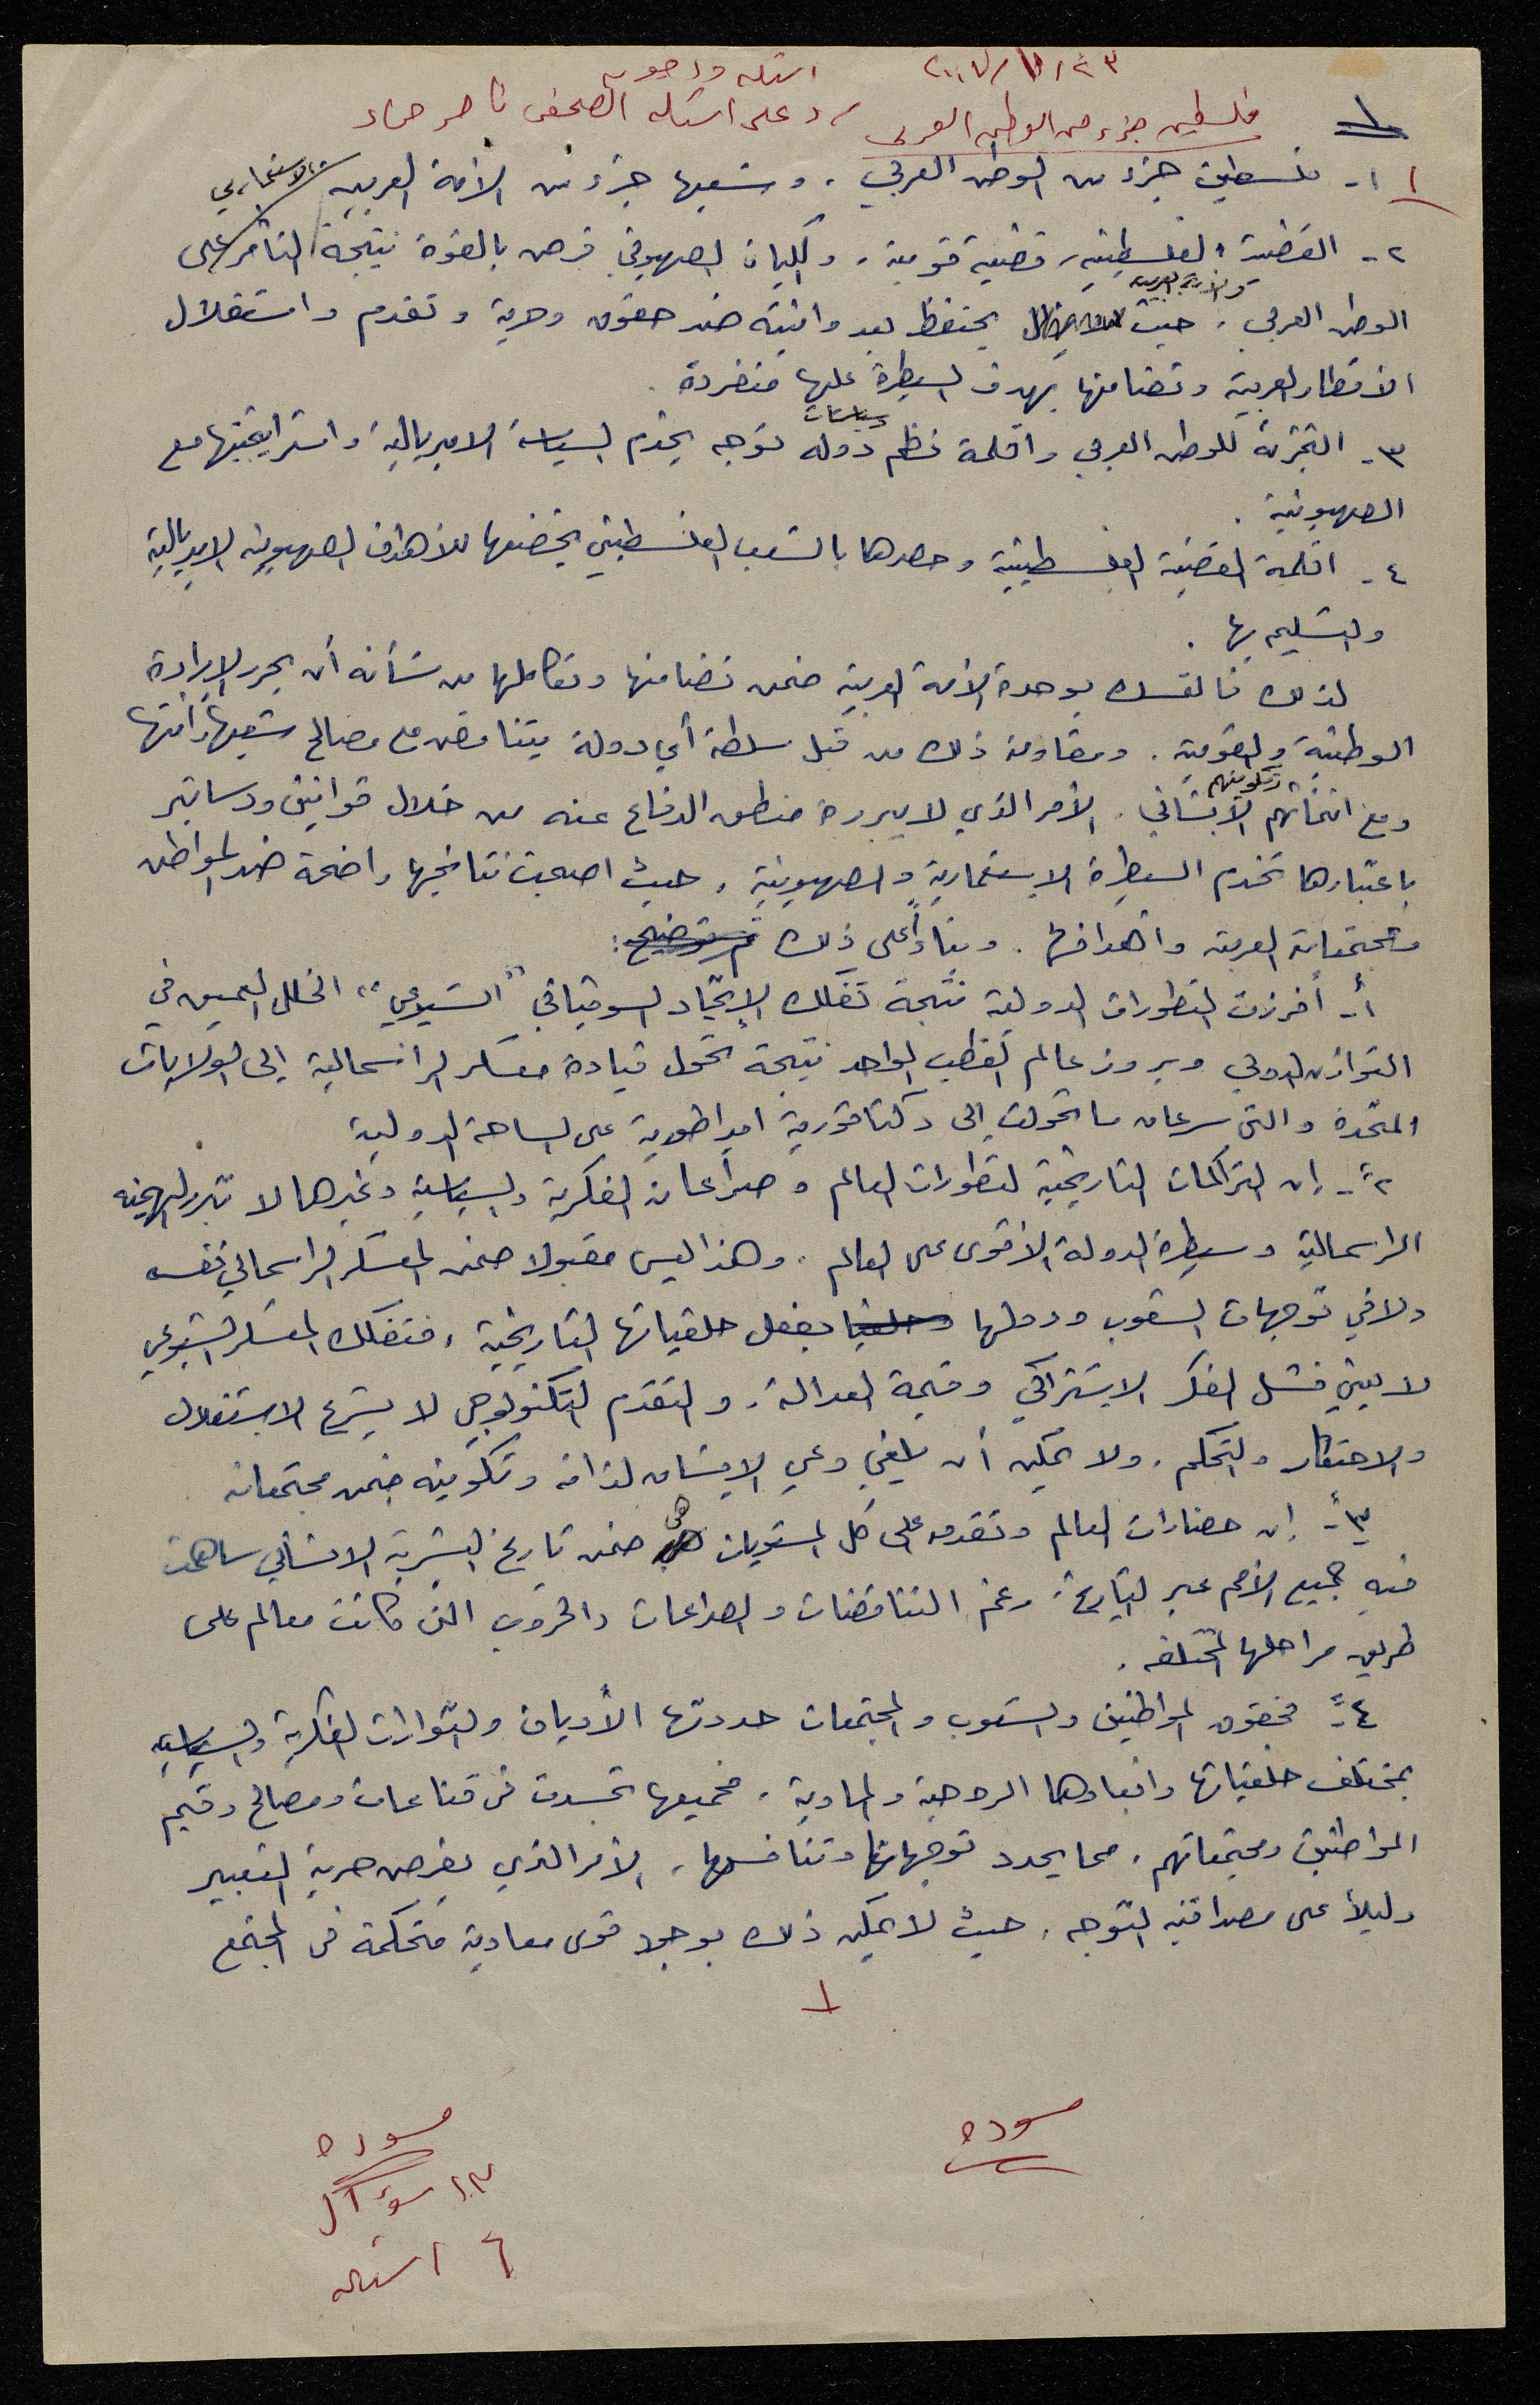 اسئله واجوبه
فلسطين جزء من الوطن العربي رد على اسئلة الصحفي ناصر حماد
١ ١- فلسطين جزء من الوطن العربي، وشعبها جزء من الأمة العربية
٢- القضية الفلسطينية قضية قومية، والكيان الصهيوني فرض بالقوة نتيجة التآمر الاستعماري على
والأمة العربية
الوطن العربي، حيث يحتفظ بعدوانيته ضد حقوق وحرية وتقدم واستقلال
الأقطار العربية وتضامنها بهدف السيطرة عليها منفردة.
٣- التجزئة للوطن العربي واقلمة نظم دوله وسياسات توجه يخدم السياسة الامبريالية واستراتيجيتها مع
الصهيونية.
٤- اقلمة القضية الفلسطينية وحصرها بالشعب الفلسطيني يخضعها للأهداف الصهيونية الامبريالية
والتسليم بها.
لذلك فالتمسك بوحدة الأمة العربية ضمن تضامنها وتكاملها من شأنه أن يحرر الإرادة
الوطنية والقومية. ومقاومة ذلك من قبل سلطة أي دولة يتناقض مع مصالح شعبها وأمتها
ومع انتمائهم وتكوينهم الإنساني. الأمر الذي لا يبرره منطق الدفاع عنه من خلال قوانين ودساتير
باعتبارها تخدم السيطرة الاستعمارية والصهيونية، حيث اصبحت نتائجها واضحة ضد المواطن
ومجتمعاته العربية وأهدافها. وبناءً على ذلك :
أ- أفرزت التطورات الدولية نتيجة تفكك الاتحاد السوفياتي "الشيوعي" الخلل العميق في
التوازن الدولي وبروز عالم القطب الواحد نتيجة تحول قيادة معسكر الرأسمالية إلى الولايات
المتحدة والتي سرعان ما تحولت إلى دكتاتورية امبراطورية على الساحة الدولية
٢ً- إن التراكمات التاريخية لتطورات العالم وصراعاته الفكرية والسياسية وغيرها لا تبرر الهيمنه
الراسمالية وسيطرة الدولة الأقوى على العالم. وهذا ليس مقبولا ضمن المعسكر الراسمالي نفسه
ولا في توجهات الشعوب ودولها بفعل خلفياتها التاريخية، فتفكك المعسكر الشيوعي
لا يعني فشل الفكر الاشتراكي وقيمة العدالة، والتقدم التكنولوجي لا يشرع الاستغلال
والاحتكار والتحكم، ولا يمكن أن يلغي وعي الإنسان لذاته وتكوينه ضمن مجتمعاته.
٣ً- إن حضارات العالم وتقدمه على كل المستويات هي ضمن تاريخ البشرية الانساني ساهمت
فيه جميع الأمم عبر التاريخ، رغم التناقضات والصراعات والحروب التي كانت معالم على
طريق مراحلها المختلفه.
٤ً- فحقوق المواطنين والشعوب والمجتمعات حددتها الأديان والثوارات الفكرية والسياسيه
بمختلف خلفياتها وابعادها الروحية والمادية، فجميعها تجسدت في قناعات ومصالح وقيم
المواطنين ومجتمعاتهم، مما يحدد توجهاتها وتنافسها، الأمر الذي يفرض حرية التعبير
دليلاً على مصداقيه التوجه، حيث لا يمكن ذلك بوجود قوى معادية متحكمة في المجتمع
١
مسوده
مسوده
١٣ سؤال
٦ اسئله